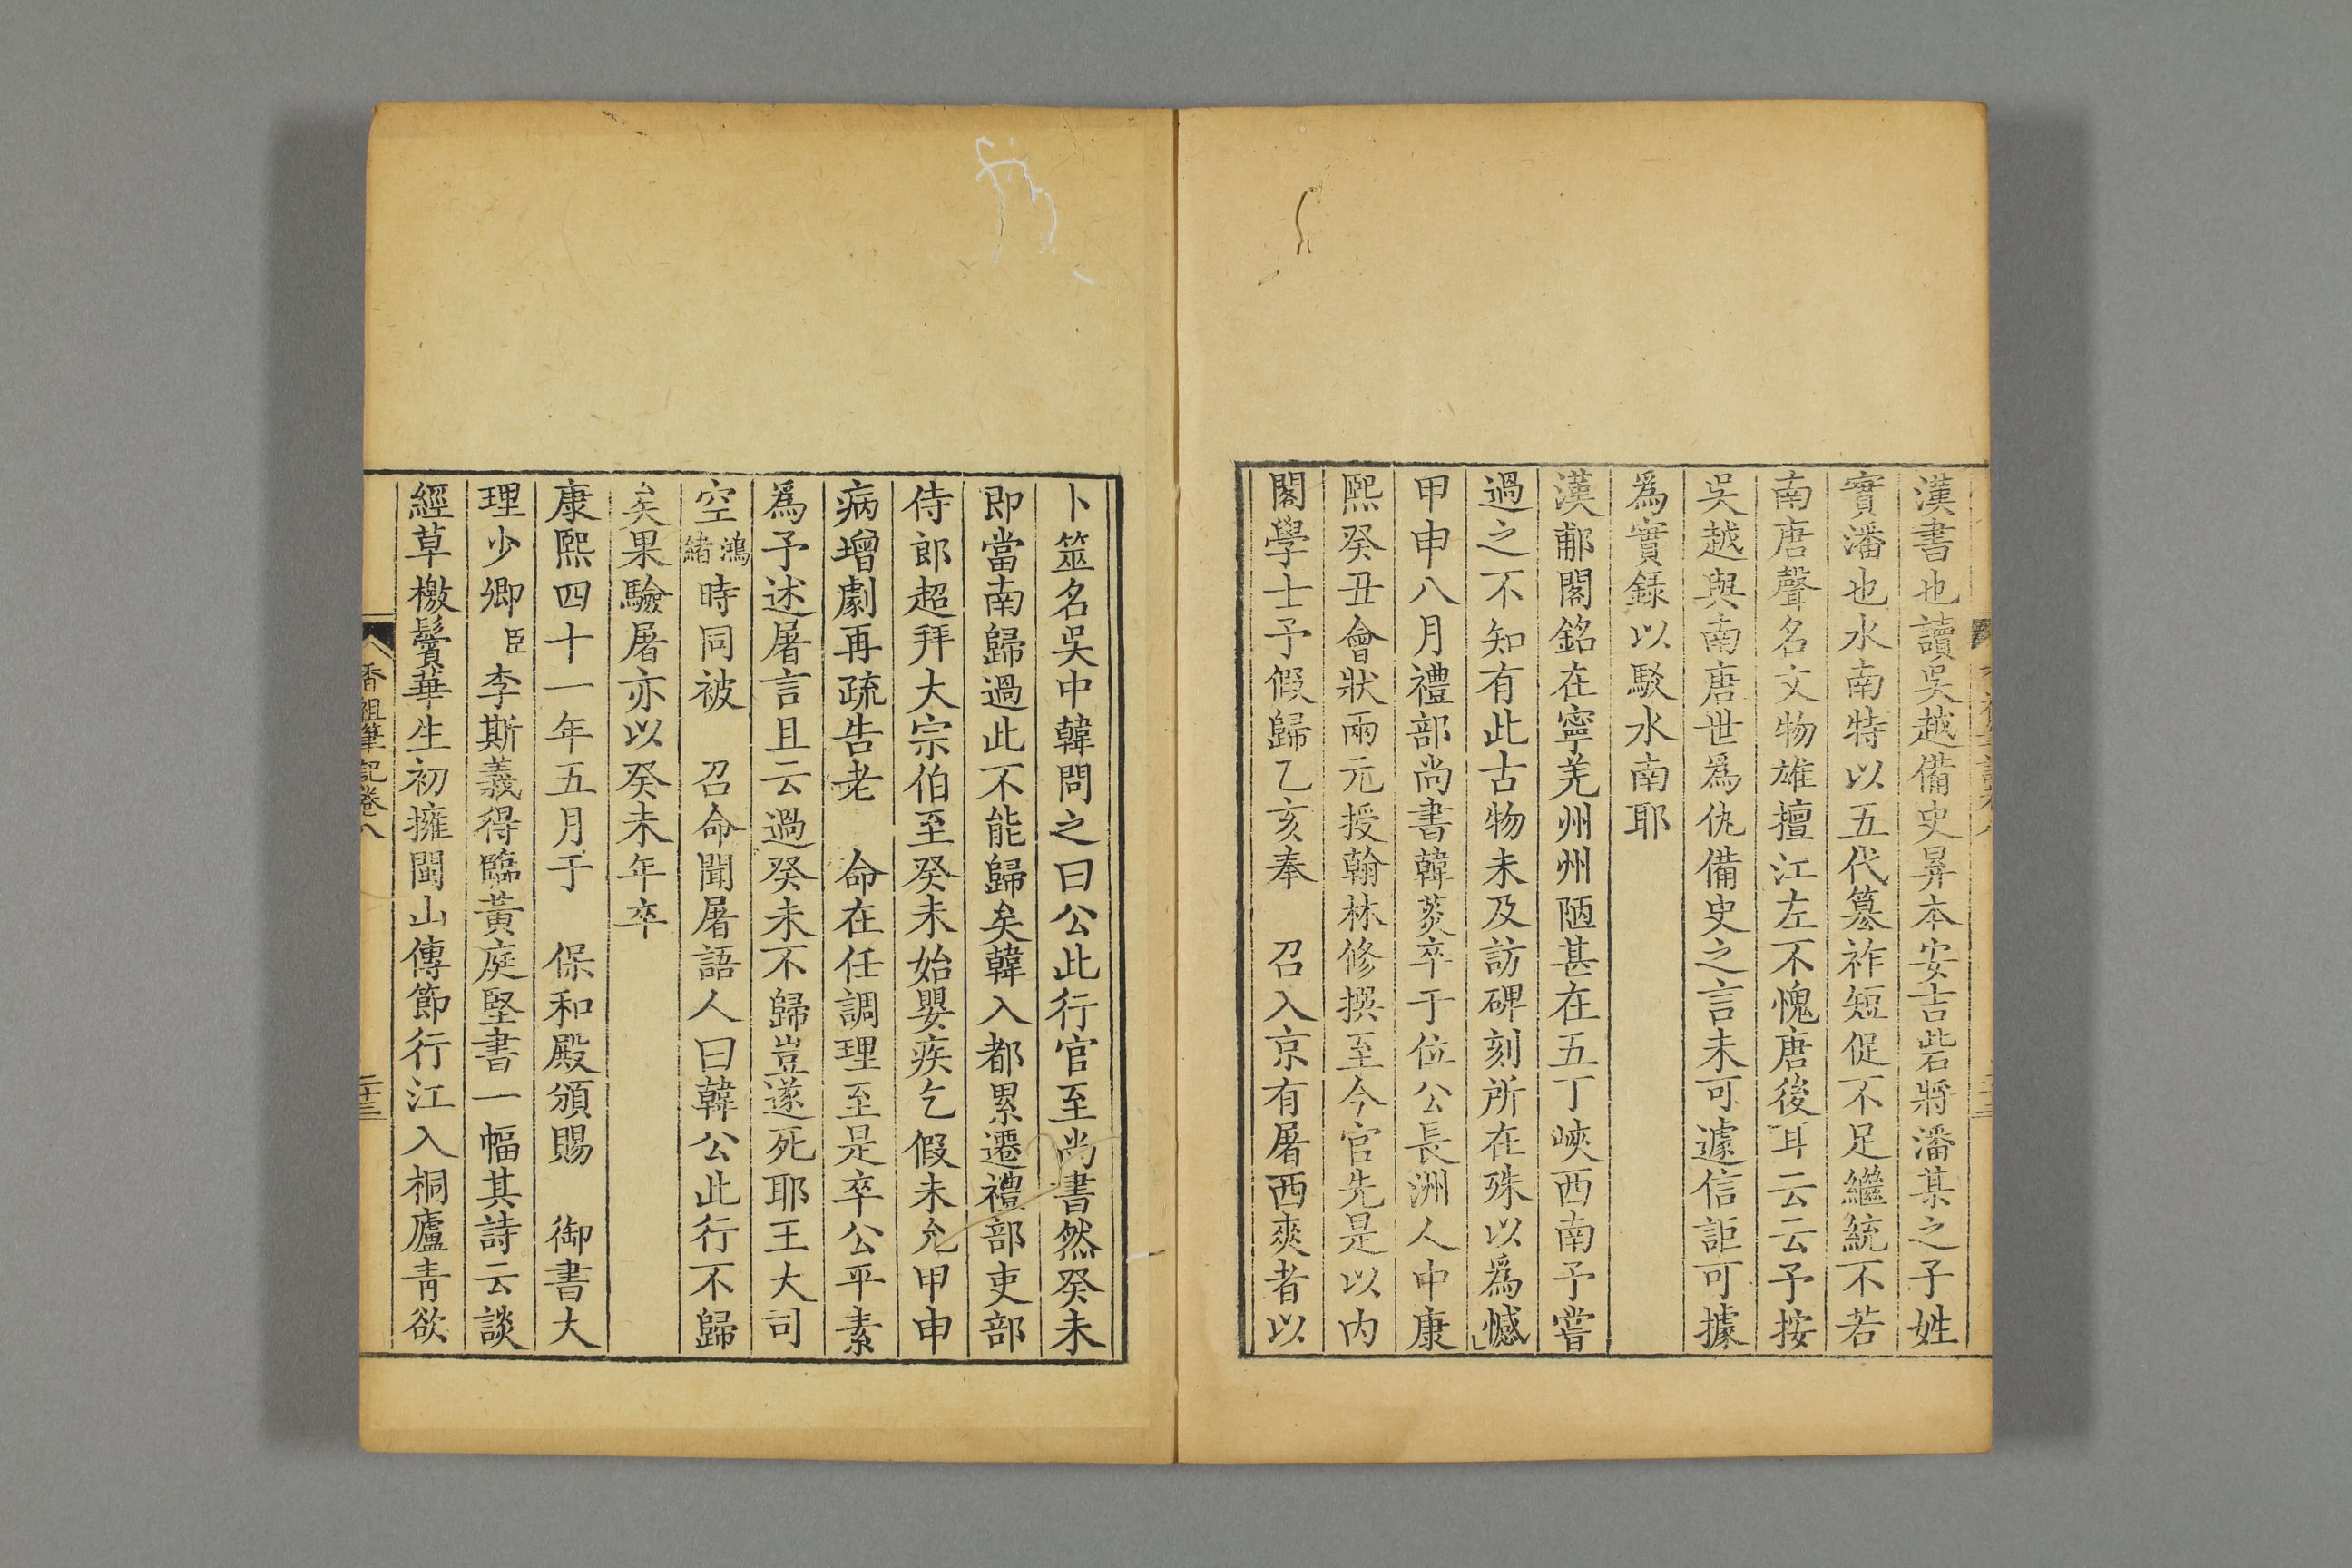 漢書也讀吳越備史昪本安吉砦將潘某之子姓
實潘也水南特以五代篡祚短促不足繼統不若
南唐聲名文物雄擅江左不愧唐後耳云云予按
吳越與南唐世爲仇備史之言未可遽信詎可據
爲實錄以駁水南耶
漢郙閣銘在寧羌州州陋甚在五丁峽西南予嘗
過之不知有此古物未及訪碑刻所在殊以爲憾
甲申八月禮部尚書韓菼卒于位公長洲人中康
熙癸丑會狀兩元授翰林修撰至今官先是以内
閣學士予假歸乙亥奉　召入京有屠西爽者以
卜筮名吳中韓問之曰公此行官至尚書然癸未
即當南歸過此不能歸矣韓入都累遷禮部吏部
侍郎超拜大宗伯至癸未始嬰疾乞假未允甲申
病增劇再疏告老　命在任調理至是卒公平素
爲予述屠言且云過癸未不歸豈遂死耶王大司
空鴻緒時同被　召命聞屠語人曰韓公此行不歸
矣果驗屠亦以癸未年卒
康熙四十一年五月于　保和殿頒賜　御書大
理少卿臣李斯義得臨黃庭堅書一幅其詩云談
經草檄鬢華生初擁閩山傳節行江入桐廬青欲
香祖筆記卷八
二十三